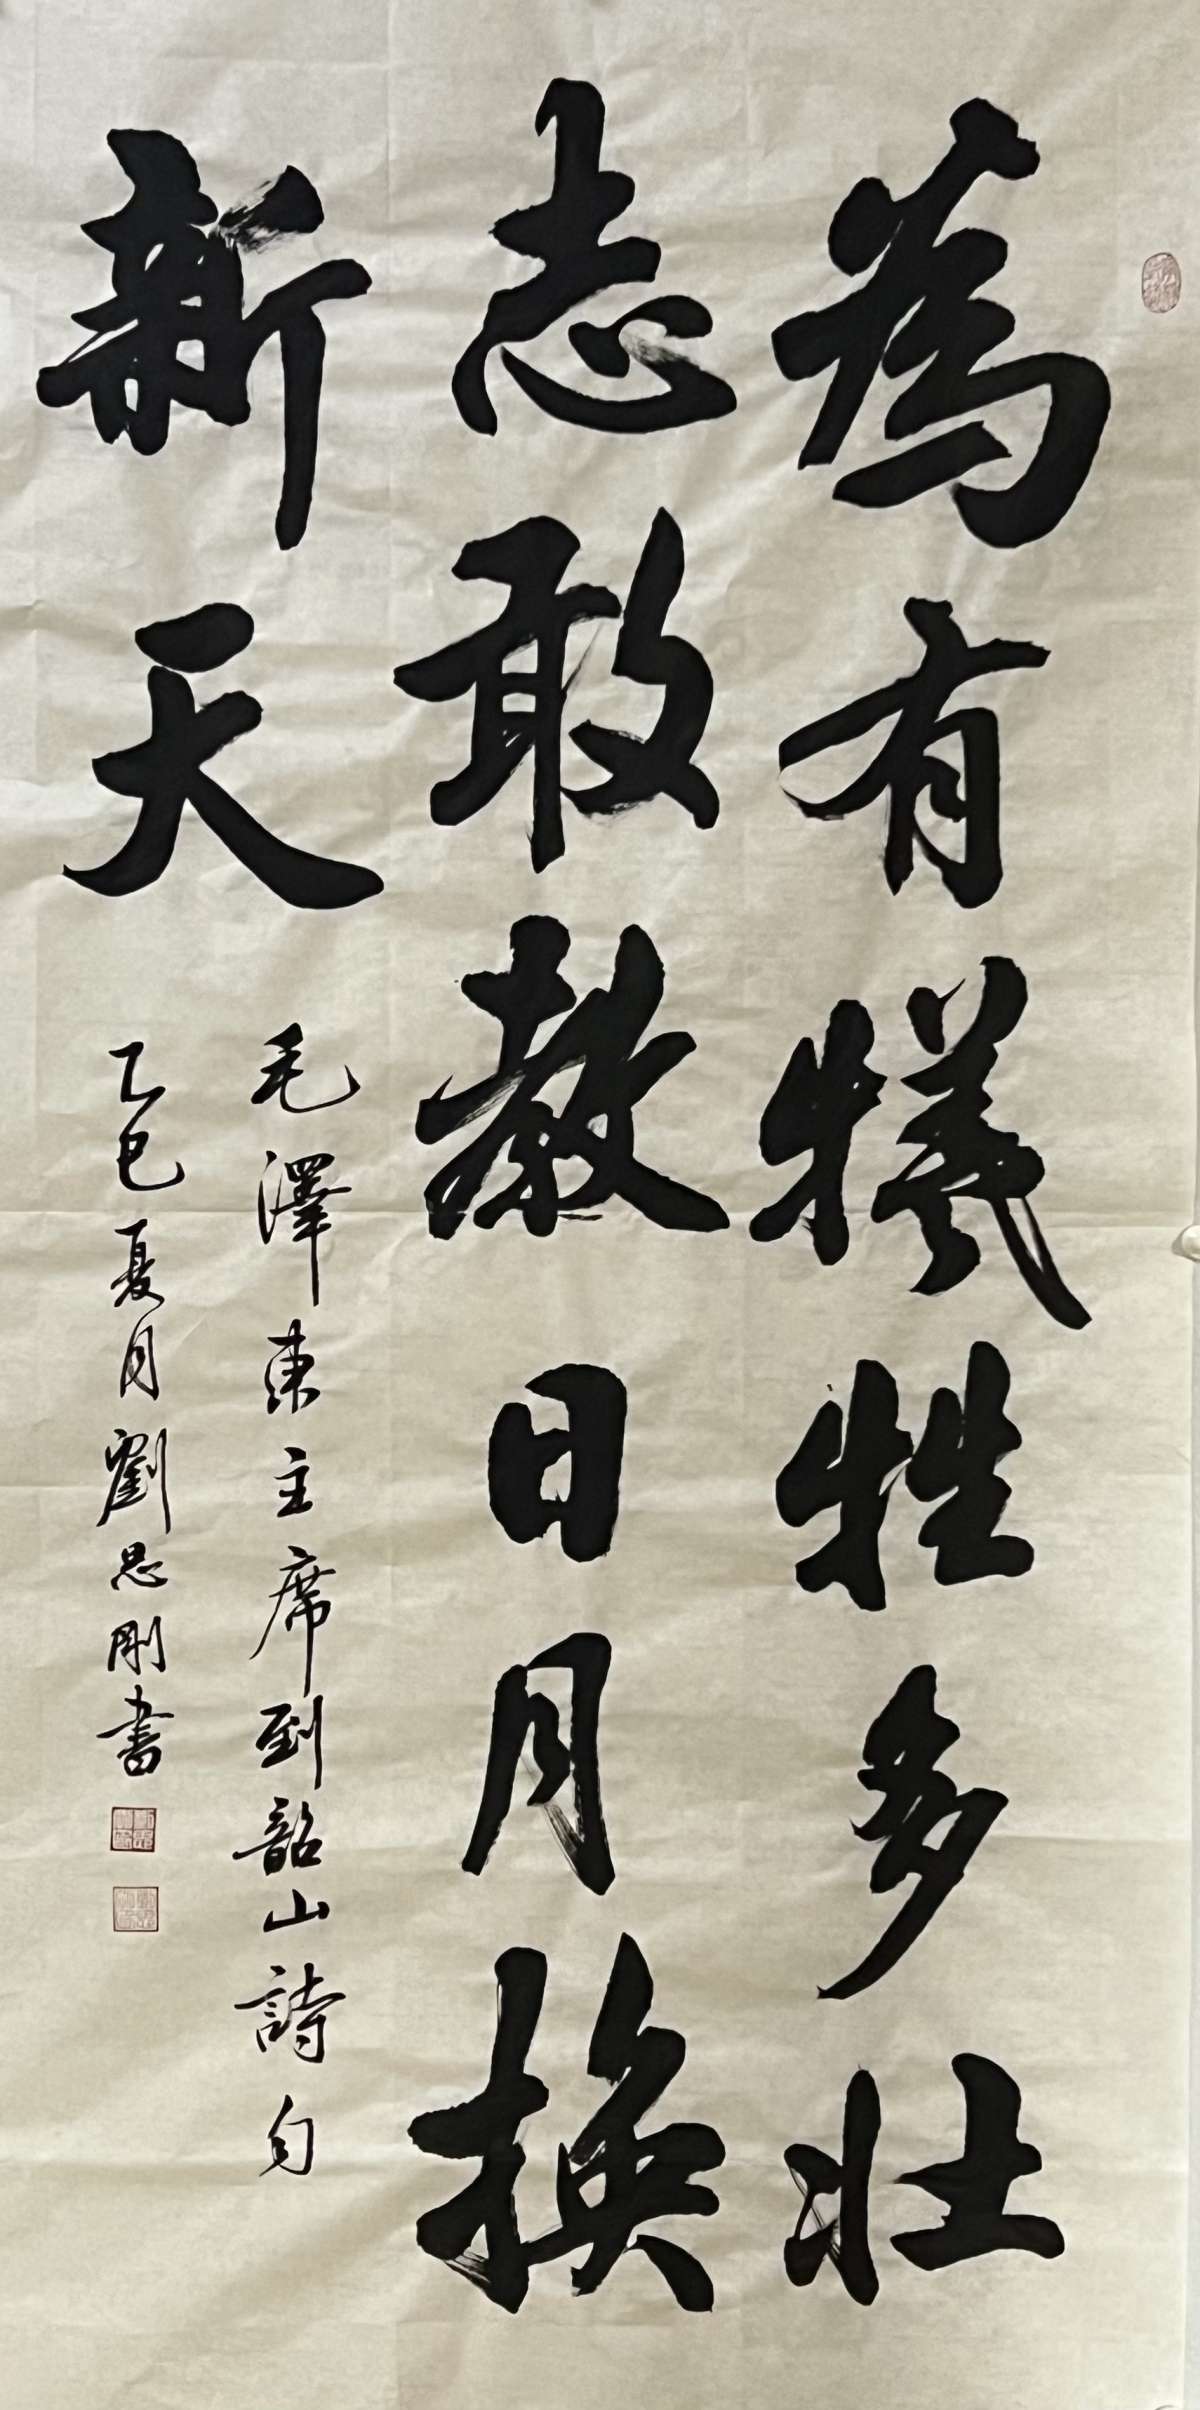 為有犧牲多壯
志敢教日月換
新天
毛澤東主席到韶山詩句
乙巳夏月劉思剛書